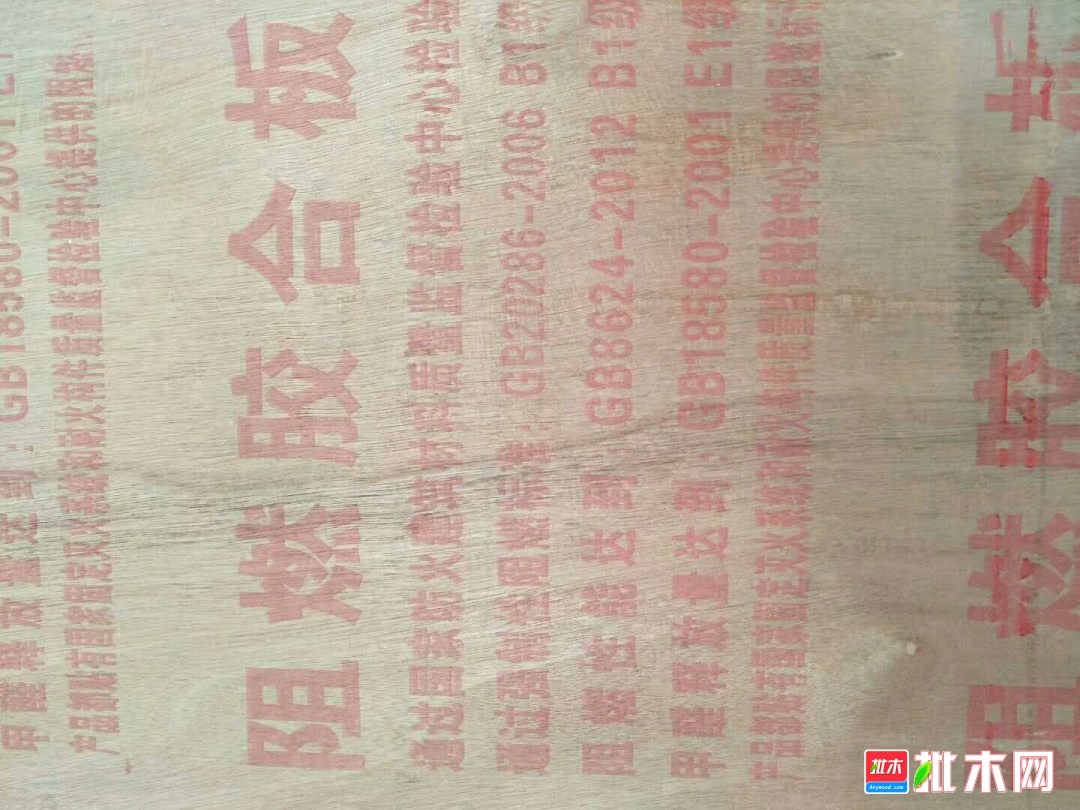 甲醛释放量达到:GB18580-2001 E1
产品都贴有国家固定灭火系统和耐火构件质量监督检验中心提供的阻燃
阻燃胶合板
通过国家防火建筑材料质量监督检验中心检验
通过强制性阻燃标准:GB20286-2006 B1级
阻燃性能达到:GB8624-2012 B1级
甲醛释放量达到:GB18580-2001 E1级
产品都贴有国家固定灭火系统和耐火构件质量监督检验中心提供的阻燃标
阻燃胶合板
批木
Anywood.com
批木网